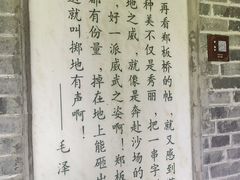 再看郑板桥的帖，就又感到苍
种美不仅是秀丽，把一串字
地之威，就像是奔赴沙场的
，好一派威武之姿啊！郑板
都有份量，掉在地上能砸出
这就叫掷地有声啊！
——毛泽